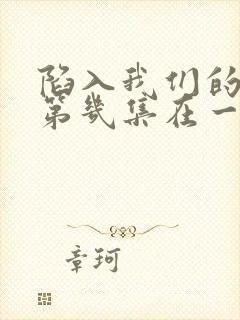 陷入我们的
第几集在一
章珂